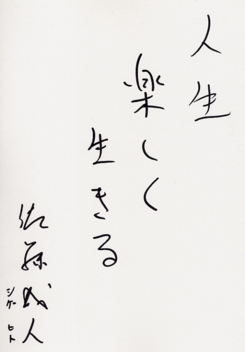 人生
楽しく
生きる
佐藤成人
シゲ ヒト